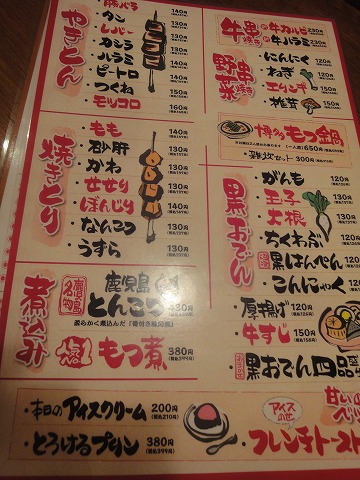 やきとん
豚バラ 140円
タン 130円
レバー 130円
カシラ 130円
ハラミ 130円
ピートロ 140円
つくね 150円
モツコロ 160円
牛串焼き
牛カルビ 230円
牛ハラミ 230円
野菜串焼き
にんにく 120円
ねぎ 120円
エリンギ 120円
椎茸 150円
博多もつ鍋
(一人前) 650円
雑炊セット 300円
焼きとり
もも 140円
砂肝 130円
かわ 130円
せせり 140円
ぼんじり 140円
なんこつ 130円
うずら 130円
黒おでん
がんも 120円
玉子 120円
大根
ちくわぶ
黒はんぺん
こんにゃく
厚揚げ 120円
牛すじ 150円
黒おでん四品
煮込み
鹿児島名物
鹿児島とんこつ
柔らかく煮込んだ「骨付き豚角煮」
もつ煮 380円
(税込399円)
本日のアイスクリーム 200円
(税込210円)
とろけるプリン 380円
(税込399円)
アイスのせ
フレンチトースト